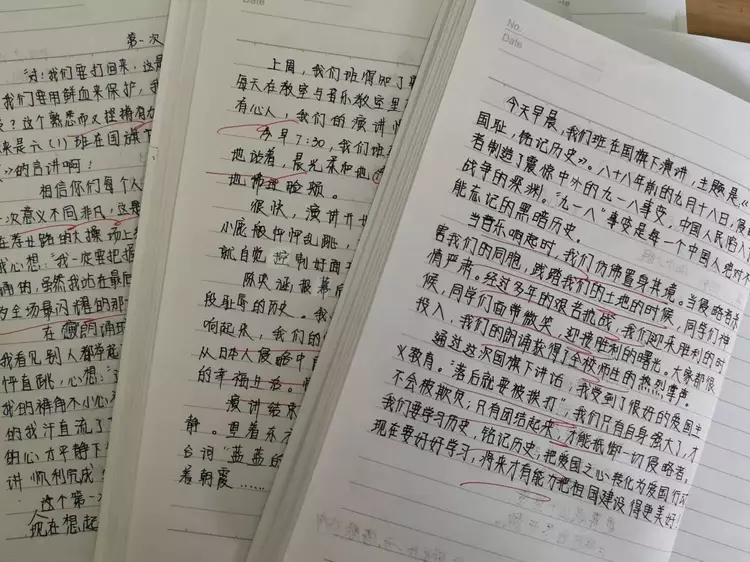 第一次
"对!我们要打回来,这是
我们要用鲜血来保护,我
?这个熟悉而又铿锵有力
来是六(1)班在国旗下
》的言讲啊!
相信你们每个人
次意义不同非凡,这是
我心想:"我一定要把握
清的,虽然我站在最后
为全场最闪耀的那
在朗诵
我看见别人都
怦直跳,心想:
我的裤角不小心
的我汗直流了
的心才平静下
讲顺利完成?
这个第一次
现在想起
Date
上周,我们班得知了
每天在教室与音乐教室里
有心人,我们的演讲
今早7:30,我们班
地站着,晨光柔和地
地拂过脸颊。
很快,演讲开始
小鹿般怦怦乱跳,
就自觉控制好面
陈奕涵报幕后
段耻辱的历史。我
响起来,我们的
从日本人侵略中
的幸福生活。
演讲结束
静。望着东方
台词"蓝蓝的
着朝霞……
No.
Date
今天早晨,我们班在国旗下演讲,主题是《
国耻,铭记历史》。八十八年前的九月十八日,
者制造了震惊中外的九一八事变,中国人民陷入了
战争的深渊。"九一八"事变是每一个中国人绝对
能忘记的黑暗历史。
当音乐响起时,我们仿佛置身其境。当侵略者杀
害我们的同胞,践踏我们的土地的时候,同学们神
情严肃。经过多年的艰苦抗战,我们迎来胜利的时
候,同学们面带微笑,迎接胜利的曙光。大家都很
投入,我们的朗诵获得了全校师生的热烈掌声。
通过这次国旗下讲话,我受到了很好的爱国主
义教育。"落后就要被挨打",我们只有自身强大了,才
不会被欺负;只有团结起来,才能抵御一切侵略者。
我们要学习历史,铭记历史,把爱国之心转化为爱国行动
现在要好好学习,将来才有能力把祖国建设得更美好!